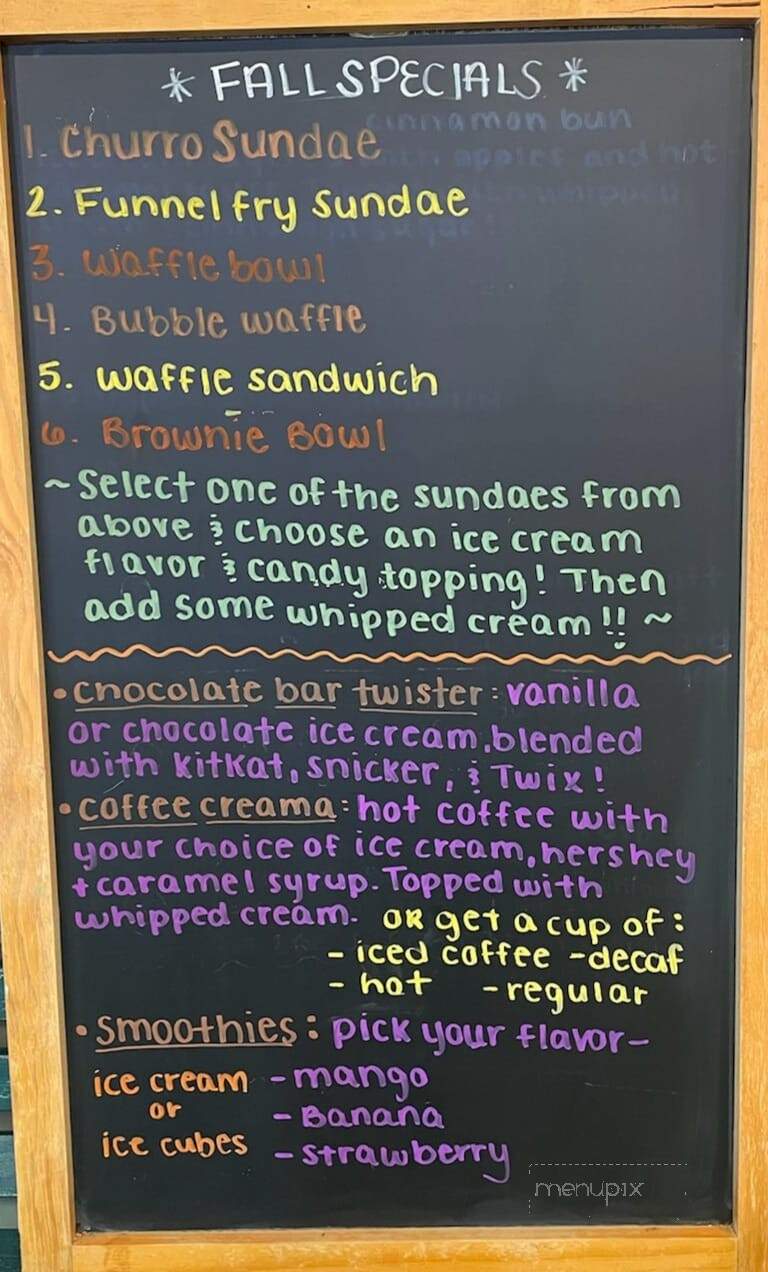 * FALL SPECIALS *
1. Churro Sundae
2. Funnel fry Sundae
3. Waffle bowl
4. Bubble waffle
5. Waffle sandwich
6. Brownie Bowl
~ Select one of the sundaes from
above & choose an ice cream
flavor & candy topping! Then
add some whipped cream!! ~
• chocolate bar twister: vanilla
or chocolate ice cream, blended
with KitKat, snicker, & Twix!
• coffee creama: hot coffee with
your choice of ice cream, hershey
+ caramel syrup. Topped with
whipped cream. OR get a cup of:
- iced coffee - decaf
- hot - regular
• Smoothies: pick your flavor-
ice cream - mango
or - Banana
ice cubes - strawberry
menupix
cinnamon bun
apples and hot
whipped